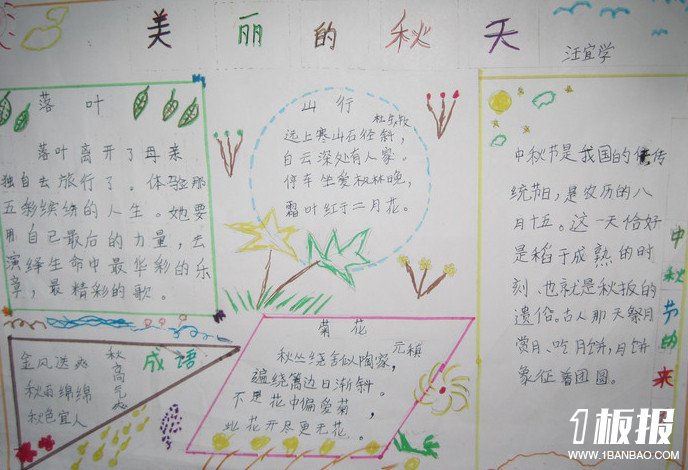 美丽的秋天
汪宜学
落叶
落叶离开了母亲
独自去旅行了。体验那
五彩缤纷的人生。她要
用自己最后的力量，去
演绎生命中最华彩的乐
章，最精彩的歌。
山行
杜牧
远上寒山石径斜，
白云深处有人家。
停车坐爱枫林晚，
霜叶红于二月花。
中秋节是我国的传
统节日，是农历的八
月十五。这一天恰好
是稻子成熟的时
刻、也就是秋报的
遗俗。古人那天祭月
赏月、吃月饼，月饼
象征着团圆。
中秋节的来
成语
金风送爽
秋雨绵绵
秋色宜人
秋高气爽
菊花
元稹
秋丛绕舍似陶家，
遍绕篱边日渐斜。
不是花中偏爱菊，
此花开尽更无花。
1板报
WWW.1BANBAO.COM